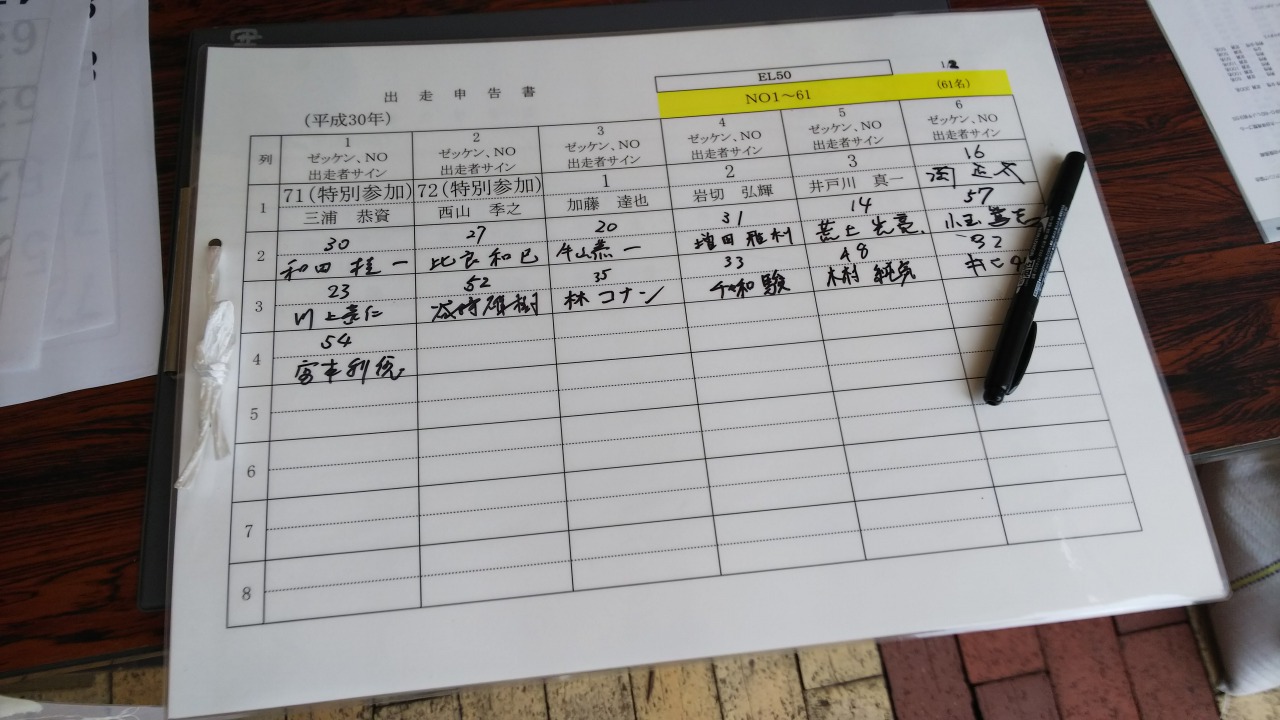 EL50
出走申告書
NO1～61 (61名)
(平成30年)
列 1 2 3 4 5 6
ゼッケン、NO ゼッケン、NO ゼッケン、NO ゼッケン、NO ゼッケン、NO ゼッケン、NO
出走者サイン 出走者サイン 出走者サイン 出走者サイン 出走者サイン 出走者サイン
1 71(特別参加) 72(特別参加) 1 2 3 16
三浦 恭資 西山 季之 加藤 達也 岩切 弘輝 井戸川 真一
2 30 27 20 31 14 57
和田 桂一 比良 和巳 増田 雅利
3 23 52 35 33 48
川上 林コナン 木村
4 54
宮本
5
6
7
8